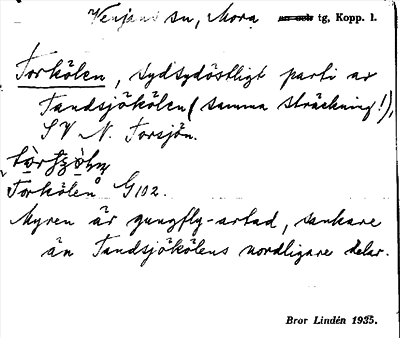 Venjans sn, Mora ~~sn och~~ tg, Kopp. l.
Torkölen, sydsydöstligt parti av
Tandsjökölen (samma sträckning!),
SV N. Torsjön.
Torkölen G 102.
Myren är gungfly-artad, sankare
än Tandsjökölens nordligare delar.
Bror Lindén 1935.